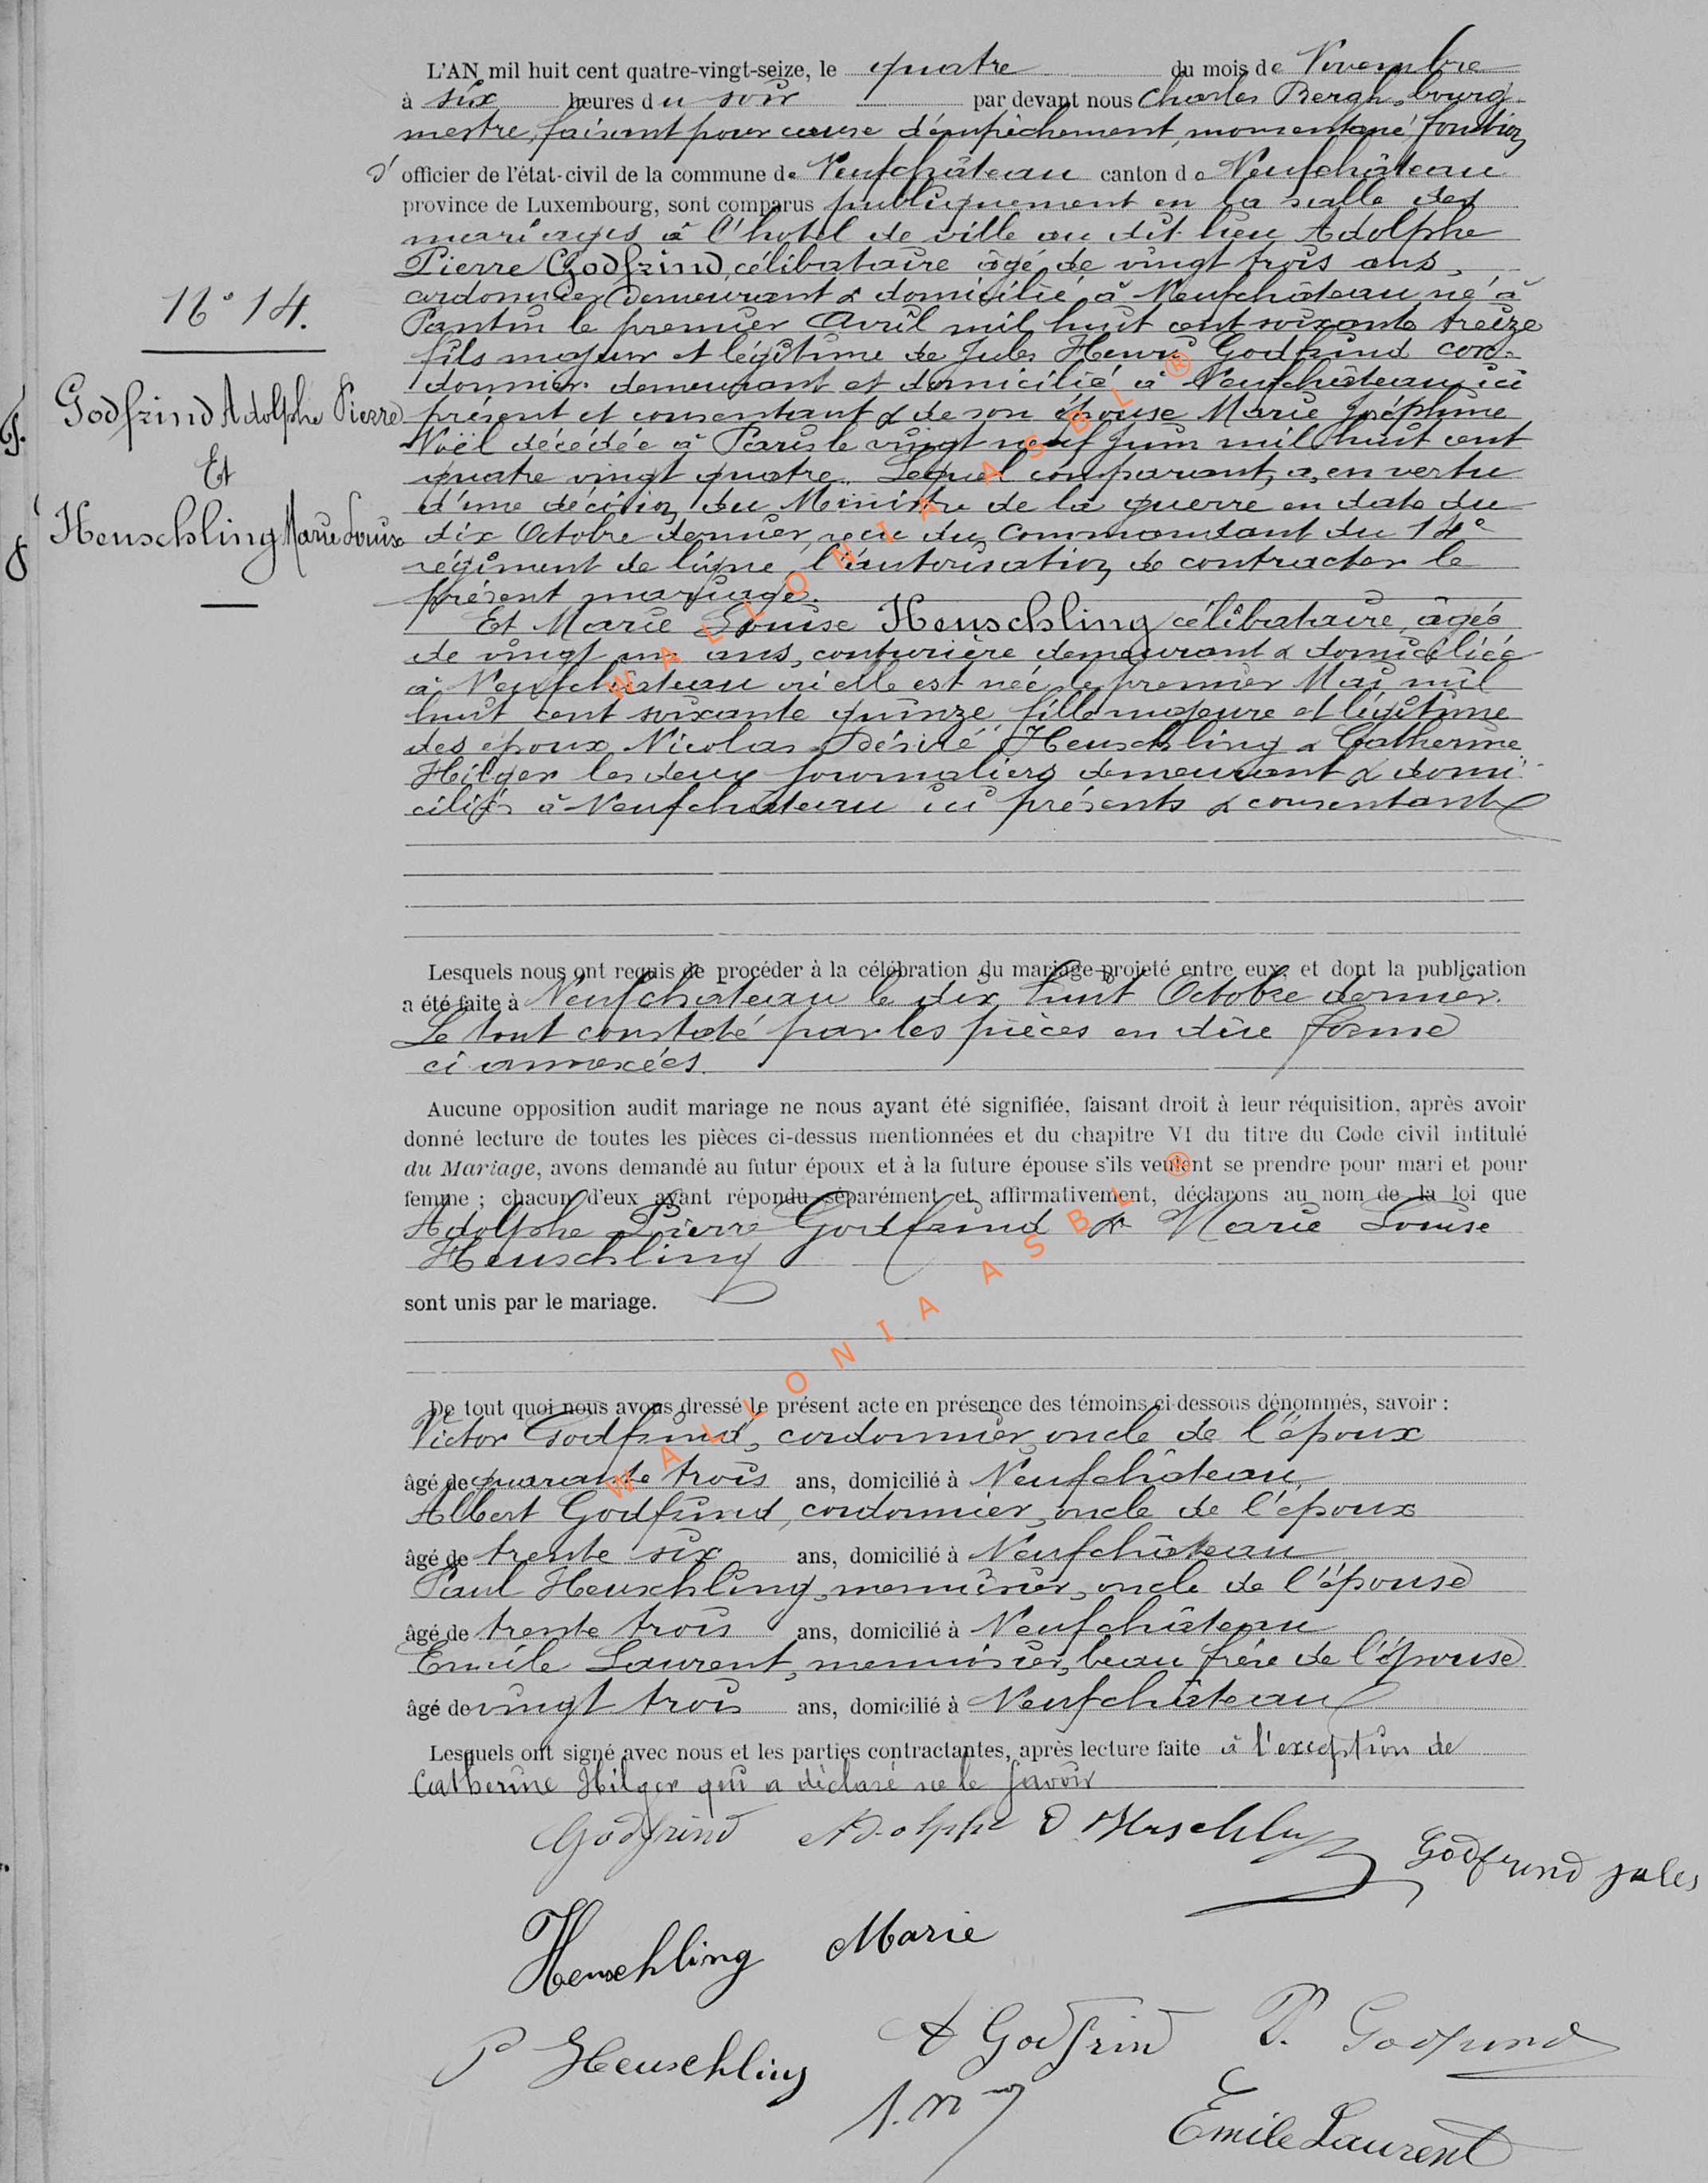 L'AN mil huit cent quatre-vingt-seize, le quatre du mois de Novembre
à six heures du soir par devant nous Charles Bergh, bourg-
mestre, faisant pour cause d'empêchement, momentané fonction
d' officier de l'état-civil de la commune de Neufchâteau canton de Neufchâteau
province de Luxembourg, sont comparus publiquement en la salle des
mariages à l'hotel de ville au dit lieu Adolphe
Pierre Godfrind, célibataire âgé de vingt trois ans,
cordonnier demeurant & domicilié à Neufchâteau né à
N° 14.
Pantin le premier Avril mil huit cent soixante treize
fils majeur et légitime de Jules Henri Godfrind cor-
donnier demeurant et domicilié à Neufchâteau ici
Godfrind Adolphe Pierre
présent et consentant & de son épouse Marie Joséphine
Noël décédée à Paris le vingt neuf Juin mil huit cent
Et
quatre vingt quatre. Lequel comparant, a, en vertu
d'une décision du Ministre de la guerre en date du
Heuschling Marie Louise
dix Octobre dernier, reçu du Commandant du 14e
régiment de ligne, l'autorisation de contracter le
présent mariage.
Et Marie Louise Heuschling célibataire, âgée
de vingt un ans, couturière demeurant & domiciliée
à Neufchâteau où elle est née le premier Mai mil
huit cent soixante quinze, fille majeure et légitime
des époux Nicolas Désiré Heuschling & Catherine
Hilger les deux journaliers demeurant & domi-
ciliés à Neufchâteau ici présents & consentants
Lesquels nous ont requis de procéder à la célébration du mariage projeté entre eux, et dont la publication
a été faite à Neufchâteau le dix huit Octobre dernier.
Le tout constaté par les pièces en due forme
ci annexées.
Aucune opposition audit mariage ne nous ayant été signifiée, faisant droit à leur réquisition, après avoir
donné lecture de toutes les pièces ci-dessus mentionnées et du chapitre VI du titre du Code civil intitulé
du Mariage, avons demandé au futur époux et à la future épouse s'ils veulent se prendre pour mari et pour
femme ; chacun d'eux ayant répondu séparément et affirmativement, déclarons au nom de la loi que
Adolphe Pierre Godfrind & Marie Louise
Heuschling
sont unis par le mariage.
De tout quoi nous avons dressé le présent acte en présence des témoins ci-dessous dénommés, savoir :
Victor Godfrind, cordonnier, oncle de l'époux
âgé de quarante trois ans, domicilié à Neufchâteau,
Albert Godfrind, cordonnier, oncle de l'époux
âgé de trente six ans, domicilié à Neufchâteau
Paul Heuschling, menuisier, oncle de l'épouse
âgé de trente trois ans, domicilié à Neufchâteau
Emile Laurent, menuisier, beau frère de l'épouse
âgé de vingt trois ans, domicilié à Neufchâteau
Lesquels ont signé avec nous et les parties contractantes, après lecture faite à l'exception de
Catherine Hilger qui a déclaré ne le savoir
Godfrind Adolphe D. Heschling Godfrind Jules
Heuschling Marie
P Heuschling A Godfrind V. Godfrind
Emile Laurent
WALLONIA ASBL ®
WALLONIA ASBL ®